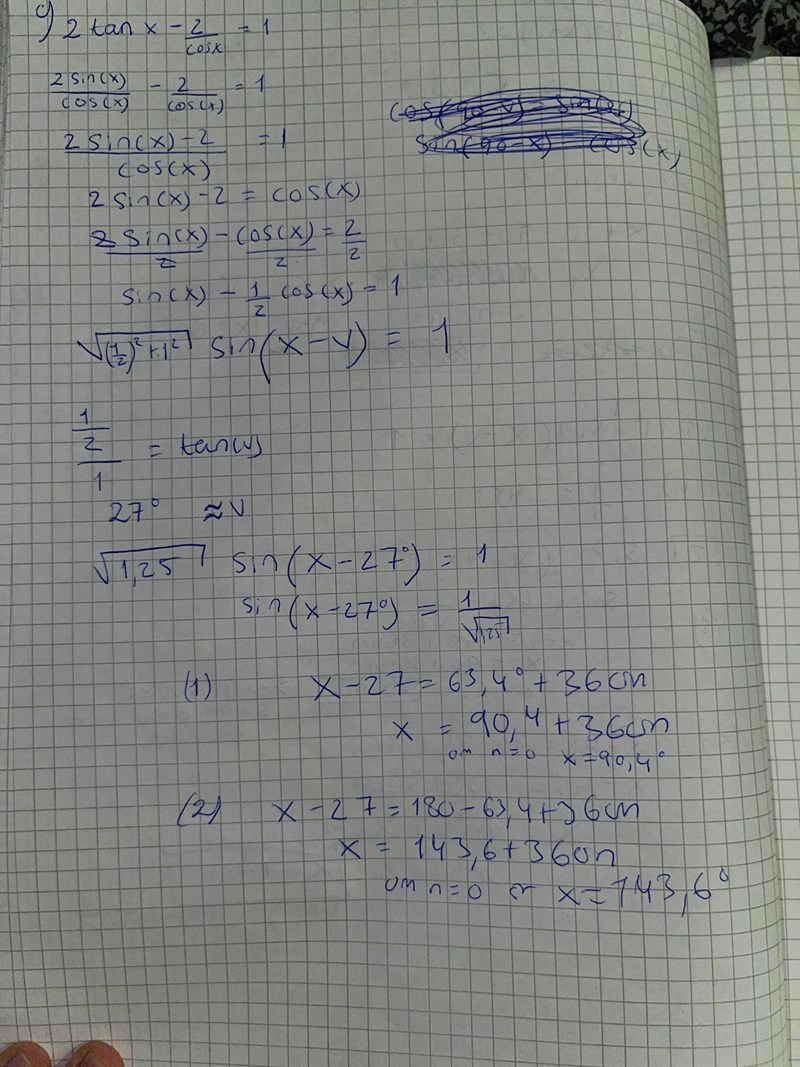 c) 2 tan x - 2/cosx = 1
2 sin(x)/cos(x) - 2/cos(x) = 1
2 sin(x) - 2/cos(x) = 1
2 sin(x) - 2 = cos(x)
2 sin(x)/2 - cos(x)/2 = 2/2
sin(x) - 1/2 cos(x) = 1
√((1/2)² + 1²) sin(x - v) = 1
1/2/1 = tan(v)
27° ≈ v
√1,25 sin(x - 27°) = 1
sin(x - 27°) = 1/√1,25
(1) x - 27 = 63,4° + 360n
x = 90,4 + 360n
om n = 0 x = 90,4°
(2) x - 27 = 180 - 63,4 + 360n
x = 143,6 + 360n
om n = 0 är x = 143,6°